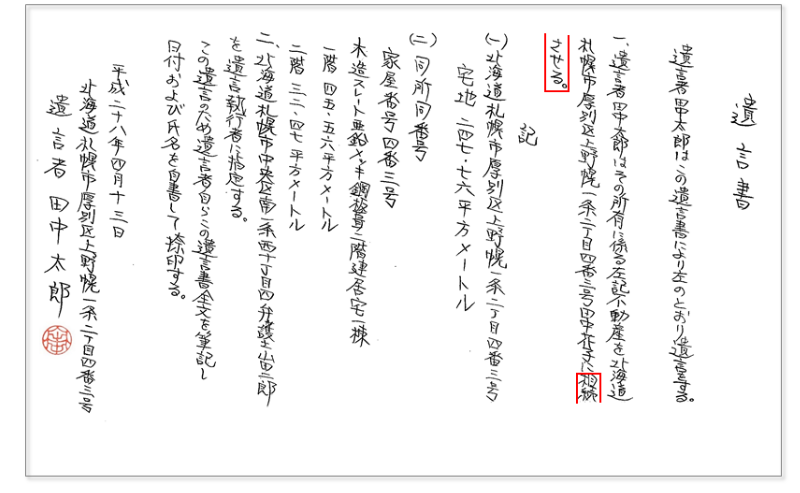 遺言書
遺言者田中太郎はこの遺言書により左のとおり遺言する。
一、遺言者田中太郎はその所有に係る左記不動産を北海道
札幌市厚別区上野幌一条二丁目四番三号田中花子に相続
させる。
記
(一)北海道札幌市厚別区上野幌一条二丁目四番三号
宅地 二四七・七六平方メートル
(二)同所同番号
家屋番号四番三号
木造スレート亜鉛メッキ鋼板葺二階建居宅一棟
一階 四五・五六平方メートル
二階 三二・四七平方メートル
二、北海道札幌市中央区南一条西十丁目四弁護士山田二郎
を遺言執行者に指定する。
この遺言のため遺言者自らこの遺言書全文を筆記し
日付および氏名を自書して捺印する。
平成二十八年四月十三日
北海道札幌市厚別区上野幌一条二丁目四番三号
遺言者 田中太郎